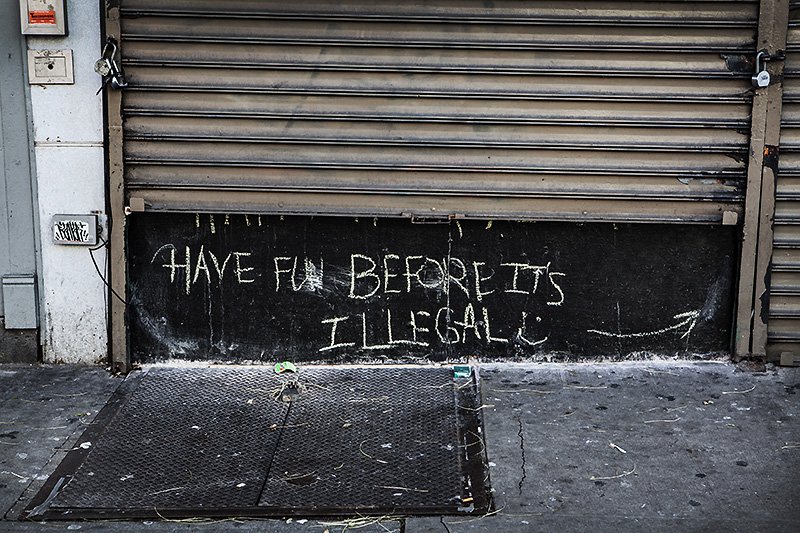 HAVE FUN BEFORE IT'S
ILLEGAL